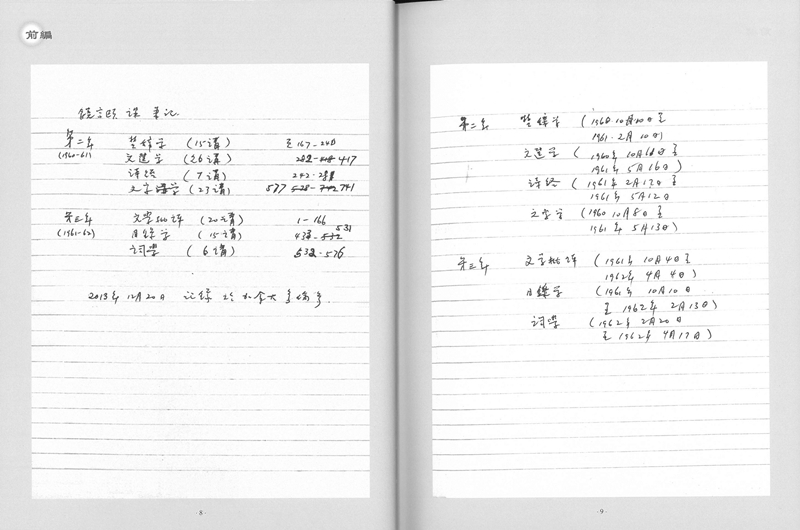 前編
饒宗頤 課 筆記
第二年 楚辭学 (15講) 167-240
(1960-61) 文選学 (26講) 417
詩経 (7講) 242-
文字学 (23講) 537 741
第三年 文学批評 (20講) 1-166
(1961-62) 目録学 (15講) 531
詞學 (6講) 532-576
2013年12月20日 記録 於 加拿大多倫多.
8
第二年 楚辭学 (1960.10月20日至
1961.2月10日)
文選学 (1960年10月
1961年5月16日)
詩経 (1961年2月17日至
1961年5月12日
文字学 (1960 10月8日至
1961年5月13日)
第三年 文学批評 (1961年10月4日至
1962年4月4日)
目録学 (1961年10月10日
至1962年2月13日)
詞學 (1962年2月20日
至1962年4月17日)
9